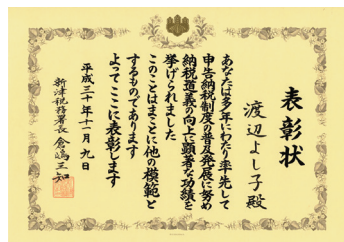 表彰状
渡辺よし子殿
あなたは多年にわたり率先して
申告納税制度の普及発展に努め
納税道義の向上に顕著な功績を
挙げられました
このことはまことに他の模範と
するものであります
よってここに表彰します
平成三十年十一月九日
新津税務署長 倉嶋三知